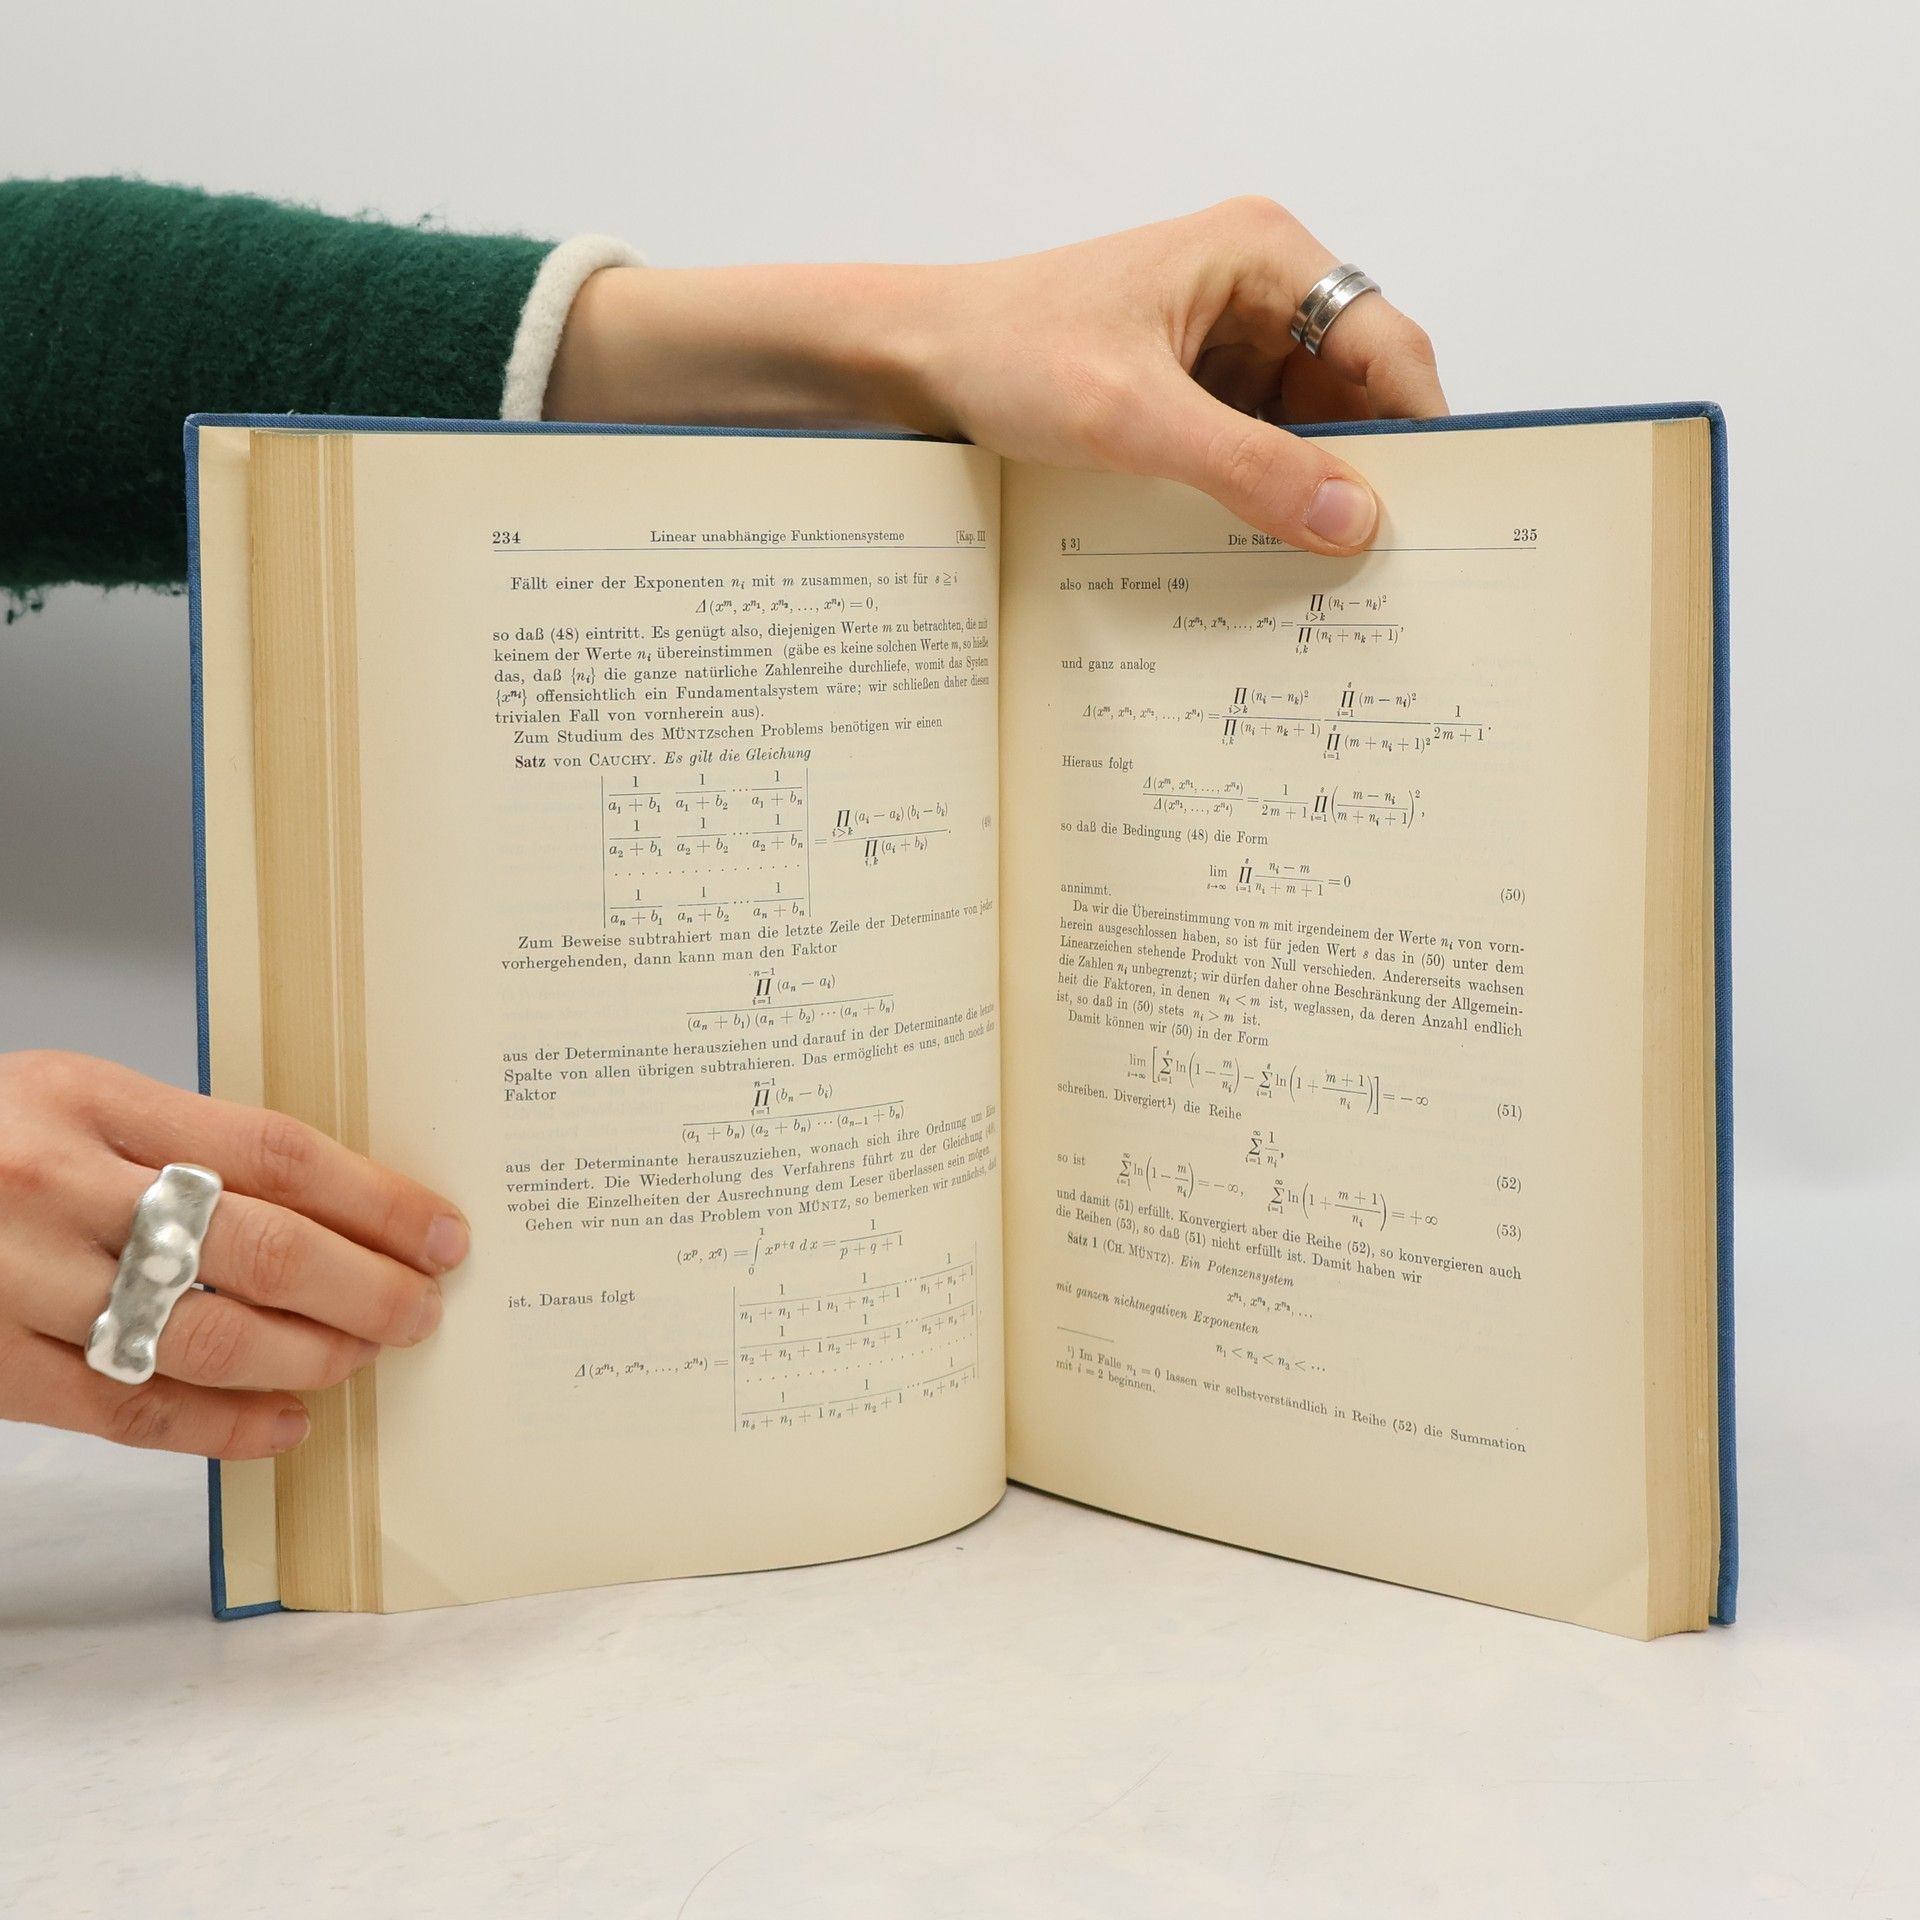 234 Linear unabhängige Funktionensysteme [Kap. III
Fällt einer der Exponenten nᵢ mit m zusammen, so ist für s ≧ i
Δ(xᵐ, xⁿ¹, xⁿ², ..., xⁿˢ) = 0,
so daß (48) eintritt. Es genügt also, diejenigen Werte m zu betrachten, die mit
keinem der Werte nᵢ übereinstimmen (gäbe es keine solchen Werte m, so hieße
das, daß {nᵢ} die ganze natürliche Zahlenreihe durchliefe, womit das System
{xⁿⁱ} offensichtlich ein Fundamentalsystem wäre; wir schließen daher diesen
trivialen Fall von vornherein aus).
Zum Studium des MÜNTZschen Problems benötigen wir einen
Satz von CAUCHY. Es gilt die Gleichung
| 1/(a₁ + b₁) 1/(a₁ + b₂) ... 1/(a₁ + bₙ) |
| 1/(a₂ + b₁) 1/(a₂ + b₂) ... 1/(a₂ + bₙ) | = ∏_{i>k} (aᵢ − aₖ)(bᵢ − bₖ) / ∏_{i,k} (aᵢ + bₖ). (49)
. . . . . . . . . . . . . .
| 1/(aₙ + b₁) 1/(aₙ + b₂) ... 1/(aₙ + bₙ) |
Zum Beweise subtrahiert man die letzte Zeile der Determinante von jeder
vorhergehenden, dann kann man den Faktor
∏_{i=1}^{n−1} (aₙ − aᵢ) / (aₙ + b₁)(aₙ + b₂) ⋯ (aₙ + bₙ)
aus der Determinante herausziehen und darauf in der Determinante die letzte
Spalte von allen übrigen subtrahieren. Das ermöglicht es uns, auch noch den
Faktor
∏_{i=1}^{n−1} (bₙ − bᵢ) / (a₁ + bₙ)(a₂ + bₙ) ⋯ (aₙ₋₁ + bₙ)
aus der Determinante herauszuziehen, wonach sich ihre Ordnung um Eins
vermindert. Die Wiederholung des Verfahrens führt zu der Gleichung (49),
wobei die Einzelheiten der Ausrechnung dem Leser überlassen sein mögen.
Gehen wir nun an das Problem von MÜNTZ, so bemerken wir zunächst, daß
(xᵖ, x^q) = ∫₀¹ x^{p+q} dx = 1/(p + q + 1)
ist. Daraus folgt
| 1/(n₁ + n₁ + 1) 1/(n₁ + n₂ + 1) ... 1/(n₁ + nₛ + 1) |
Δ(xⁿ¹, xⁿ², ..., xⁿˢ) = | 1/(n₂ + n₁ + 1) 1/(n₂ + n₂ + 1) ... 1/(n₂ + nₛ + 1) |,
. . . . . . . . . . . . . .
| 1/(nₛ + n₁ + 1) 1/(nₛ + n₂ + 1) ... 1/(nₛ + nₛ + 1) |
§ 3] Die Sätze 235
also nach Formel (49)
Δ(xⁿ¹, xⁿ², ..., xⁿˢ) = ∏_{i>k} (nᵢ − nₖ)² / ∏_{i,k} (nᵢ + nₖ + 1),
und ganz analog
Δ(xᵐ, xⁿ¹, xⁿ², ..., xⁿˢ) = ∏_{i>k} (nᵢ − nₖ)² / ∏_{i,k} (nᵢ + nₖ + 1) ∏_{i=1}^{s} (m − nᵢ)² / ∏_{i=1}^{s} (m + nᵢ + 1)² 1/(2m + 1).
Hieraus folgt
Δ(xᵐ, xⁿ¹, ..., xⁿˢ) / Δ(xⁿ¹, ..., xⁿˢ) = 1/(2m + 1) ∏_{i=1}^{s} ((m − nᵢ)/(m + nᵢ + 1))²,
so daß die Bedingung (48) die Form
lim_{s→∞} ∏_{i=1}^{s} (nᵢ − m)/(nᵢ + m + 1) = 0 (50)
annimmt.
Da wir die Übereinstimmung von m mit irgendeinem der Werte nᵢ von vorn-
herein ausgeschlossen haben, so ist für jeden Wert s das in (50) unter dem
Linearzeichen stehende Produkt von Null verschieden. Andererseits wachsen
die Zahlen nᵢ unbegrenzt; wir dürfen daher ohne Beschränkung der Allgemein-
heit die Faktoren, in denen nᵢ < m ist, weglassen, da deren Anzahl endlich
ist, so daß in (50) stets nᵢ > m ist.
Damit können wir (50) in der Form
lim_{s→∞} [∑_{i=1}^{s} ln(1 − m/nᵢ) − ∑_{i=1}^{s} ln(1 + (m + 1)/nᵢ)] = −∞ (51)
schreiben. Divergiert¹) die Reihe
∑_{i=1}^{∞} 1/nᵢ, (52)
so ist
∑_{i=1}^{∞} ln(1 − m/nᵢ) = −∞, ∑_{i=1}^{∞} ln(1 + (m + 1)/nᵢ) = +∞ (53)
und damit (51) erfüllt. Konvergiert aber die Reihe (52), so konvergieren auch
die Reihen (53), so daß (51) nicht erfüllt ist. Damit haben wir
Satz 1 (CH. MÜNTZ). Ein Potenzensystem
xⁿ¹, xⁿ², xⁿ³, ...
mit ganzen nichtnegativen Exponenten
n₁ < n₂ < n₃ < ...
¹) Im Falle n₁ = 0 lassen wir selbstverständlich in Reihe (52) die Summation
mit i = 2 beginnen.